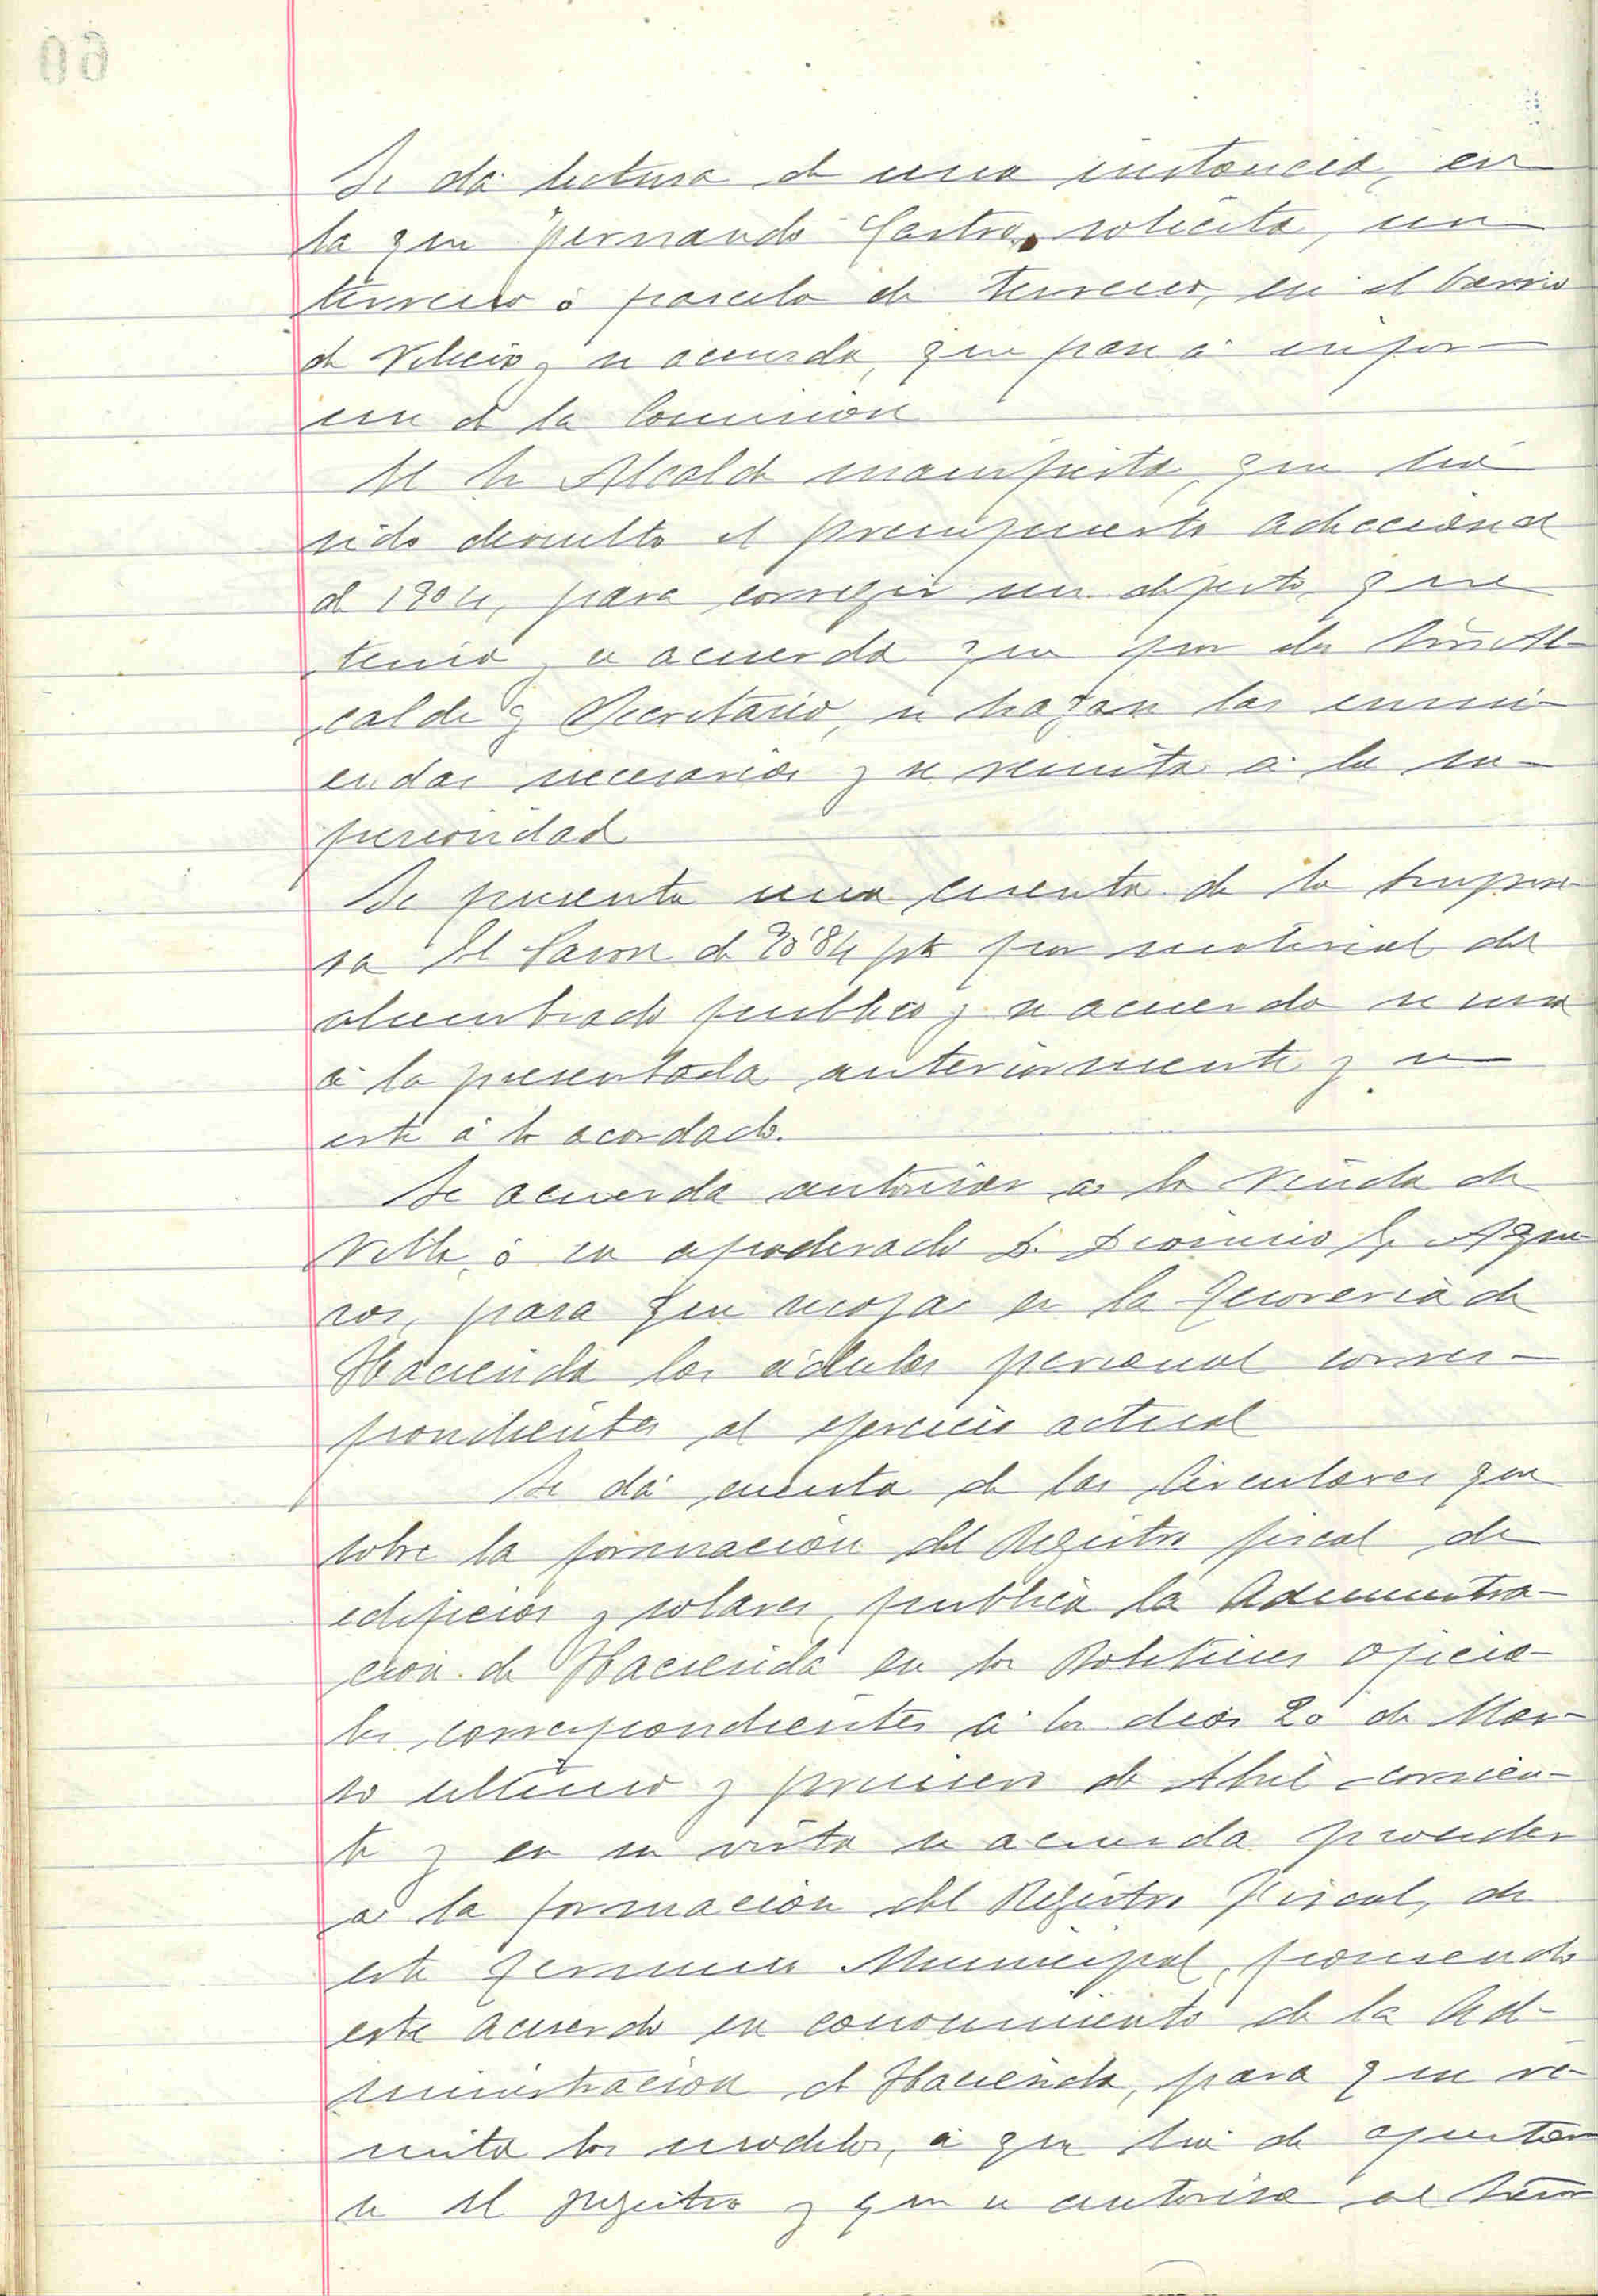 Se da lectura de una instancia, en
la que Fernando Castro, solicita, un
terreno ó parcela de terreno, en el barrio
de Velicio, se acuerda, que pase á infor-
me de la Comision
El Sr Alcalde manifiesta, que ha
sido devuelto el presupuesto adicional
de 1904, para corregir un defecto, que
tenia, se acuerda que por el Señor Al-
calde y Secretario, se hagan las enmi-
endas necesarias y se remita á la su-
perioridad
Se presenta una cuenta de la Empre-
sa El de 20'84 pts por material del
alumbrado publico y se acuerda se una
á la presentada anteriormente y se
esté á lo acordado.
Se acuerda autorizar a la Viuda de
Villa, ó su apoderado D. Dionisio G. Argüe
ros, para que recoja en la Tesoreria de
Hacienda las cédulas personal corres-
pondientes al ejercicio actual
Se dá cuenta de las Circulares que
sobre la formación del Registro fiscal de
edificios y solares, publica la Administra-
cion de Hacienda en los Boletines oficia-
les, correspondientes á los dias 20 de Mar-
zo ultimo y primero de Abril corrien-
te y en su vista se acuerda proceder
a la formacion del Registro Fiscal, de
este Termino Municipal, poniendo
este acuerdo en conocimiento de la Ad-
ministracion de Hacienda, para que re-
mita los modelos, á que ha de ajustar
se el Registro y que se autorice al Señor